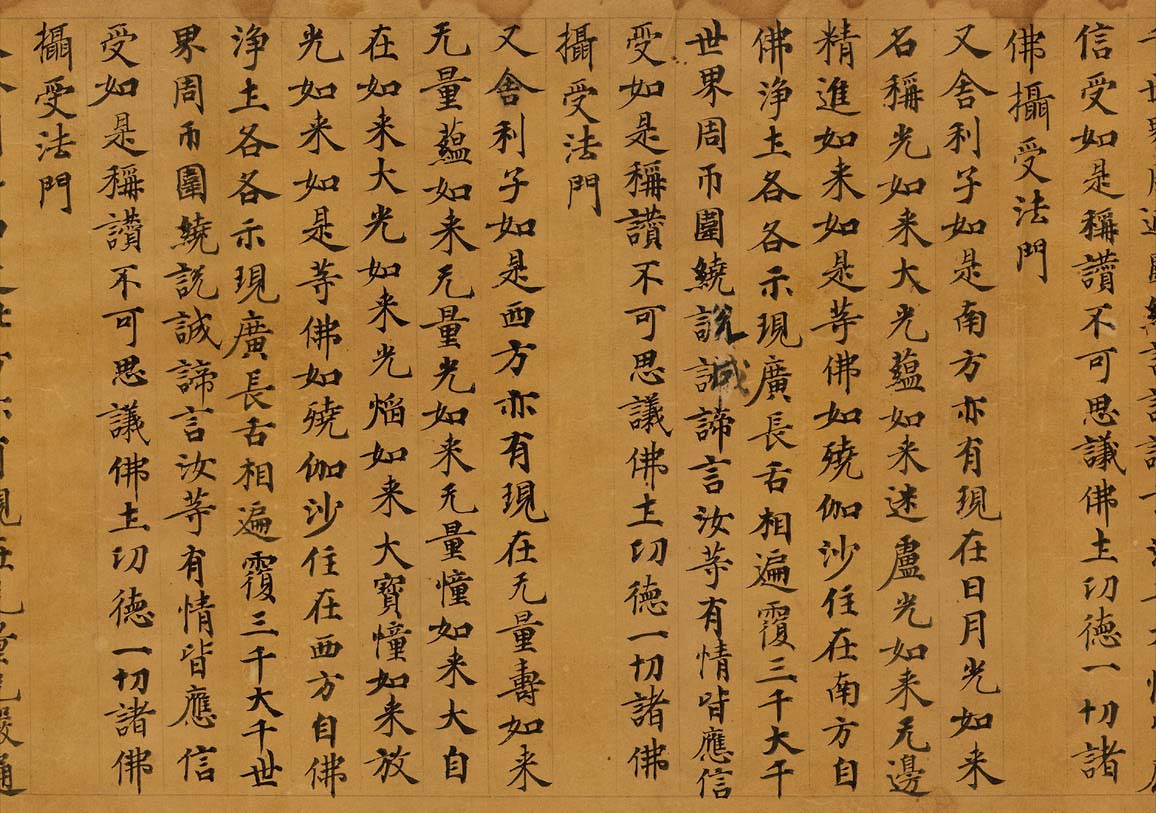 信受如是稱讚不可思議佛土功德一切諸
佛攝受法門
又舍利子如是南方亦有現在日月光如来
名稱光如来大光蘊如来迷盧光如来无邊
精進如来如是等佛如殑伽沙住在南方自
佛淨土各各示現廣長舌相遍覆三千大千
世界周帀圍繞說誠諦言汝等有情皆應信
受如是稱讚不可思議佛土功德一切諸佛
攝受法門
又舍利子如是西方亦有現在无量壽如来
无量蘊如来无量光如来无量幢如来大自
在如来大光如来光焰如来大寶幢如来放
光如来如是等佛如殑伽沙住在西方自佛
淨土各各示現廣長舌相遍覆三千大千世
界周帀圍繞説誠諦言汝等有情皆應信
受如是稱讚不可思議佛土功德一切諸佛
攝受法門